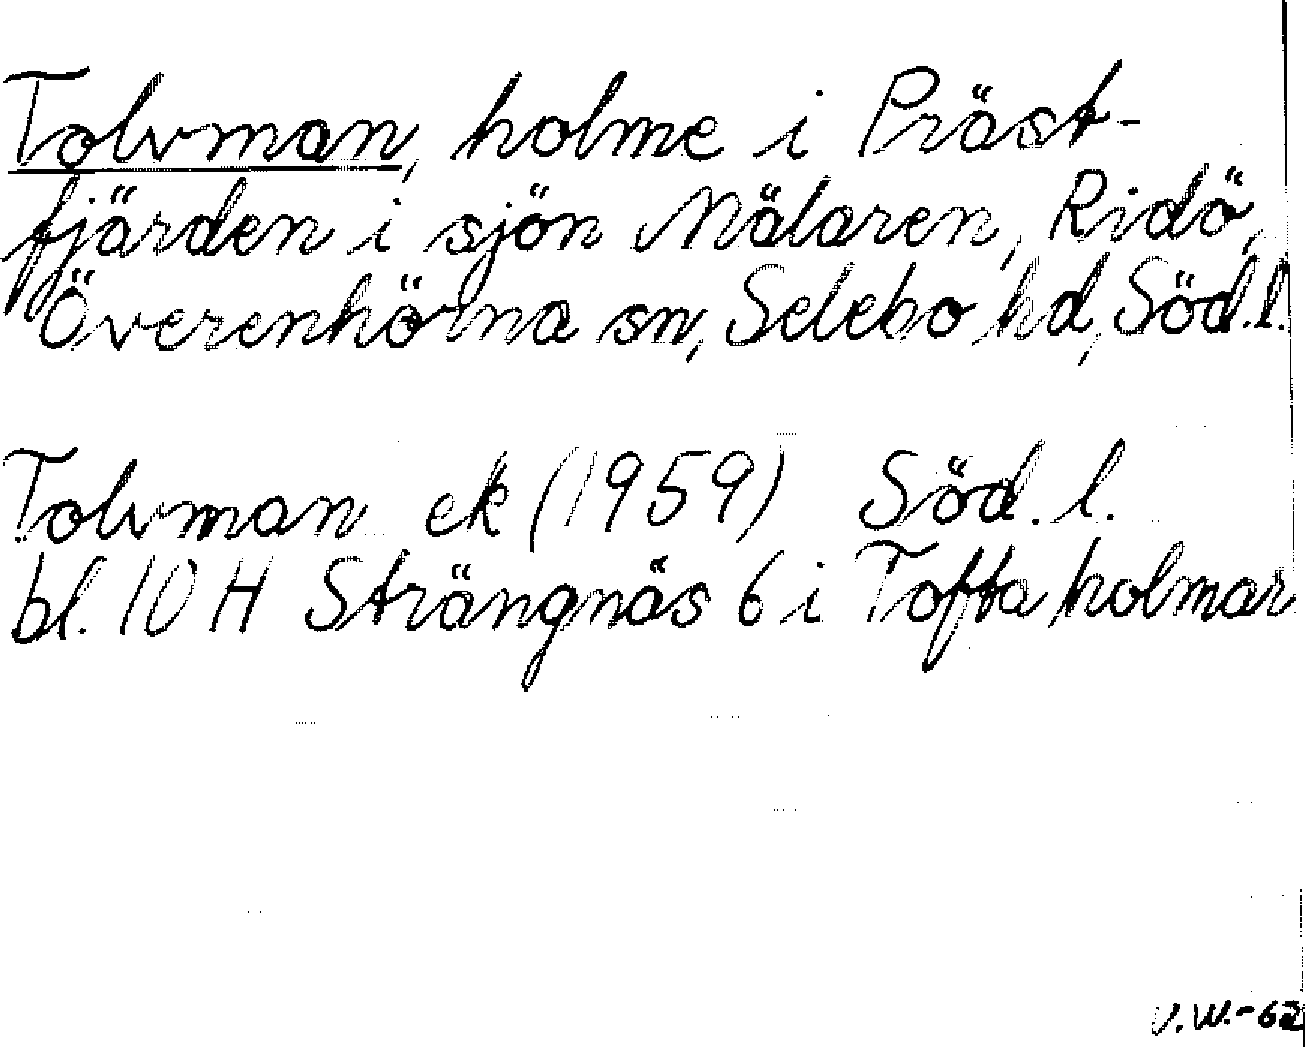 Tolvman, holme i Präst-
fjärden i sjön Mälaren, Ridö,
Överenhörna sn, Selebo hd, Söd.l.
Tolvman ek (1959) Söd. l.
bl. 10 H Strängnäs 6 i Tofta holmar
V.W.-62